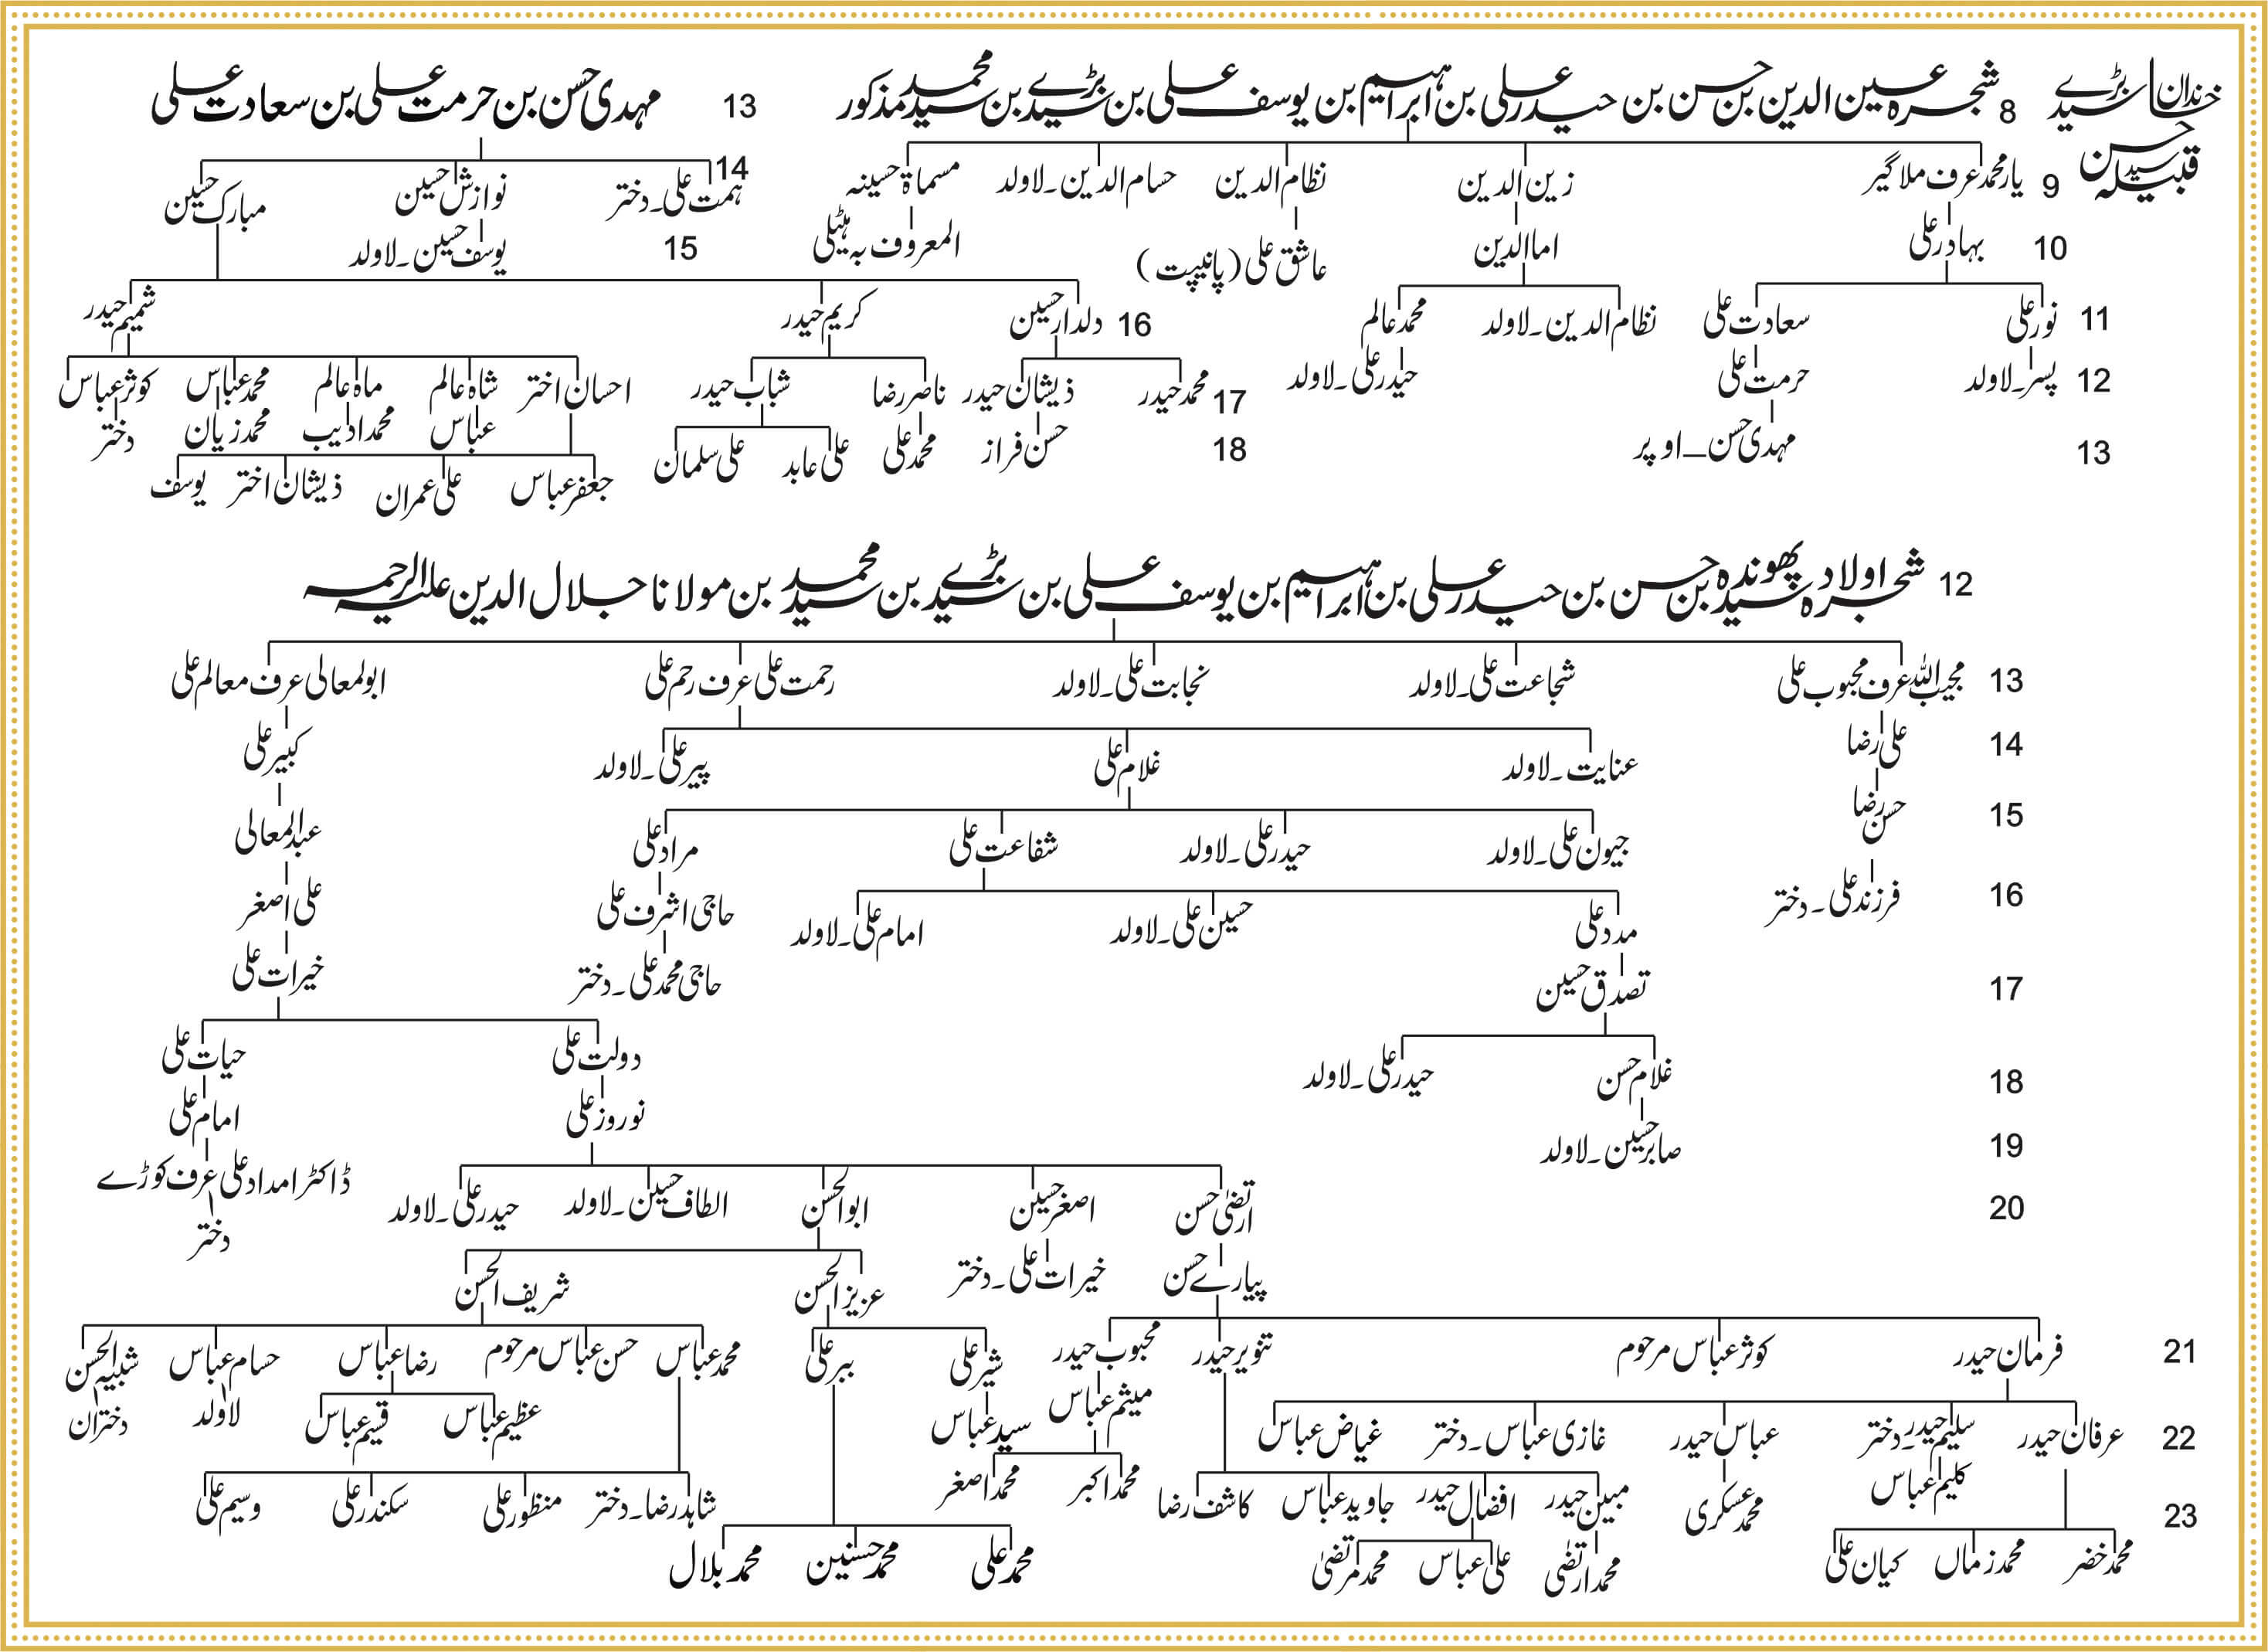 خاندان سید بڑے
قبیلہ سید حسن
8 شجرہ عین الدین بن حسن بن حیدر علی بن ابراہیم بن یوسف علی بن سید بڑے بن سید محمد مذکور
9 یار محمد عرف ملا گیر زین الدین نظام الدین حسام الدین۔لاولد مسماۃ حسینہ
10 بہادر علی اما الدین عاشق علی (پانیپت) المعروف بہ
11 نور علی سعادت علی نظام الدین۔لاولد محمد عالم
12 پسر۔لاولد حرمت علی حیدر علی۔لاولد
13 مہدی حسن—اوپر
13 مہدی حسن بن حرمت علی بن سعادت علی
14 ہمت علی۔دختر نوازش حسین مبارک حسین
15 یوسف حسین۔لاولد
16 دلدار حسین کریم حیدر شمیم حیدر
17 محمد حیدر ذیشان حیدر ناصر رضا شباب حیدر احسان اختر شاہ عالم ماہ عالم محمد عباس کوثر عباس
18 حسن فراز محمد علی علی عابد علی سلمان عباس محمد ادیب محمد زیان دختر
جعفر عباس علی عمران ذیشان اختر یوسف
12 شجرہ اولاد سید پھوندہ بن حسن بن حیدر علی بن ابراہیم بن یوسف علی بن سید بڑے بن سید محمد بن مولانا جلال الدین علیہ الرحمہ
13 مجیب اللہ عرف محبوب علی شجاعت علی۔لاولد نجابت علی۔لاولد رحمت علی عرف رحم علی ابولمعالی عرف معالم علی
14 علی رضا عنایت۔لاولد غلام علی پیر علی۔لاولد کبیر علی
15 حسن رضا جیون علی۔لاولد حیدر علی۔لاولد شفاعت علی مراد علی عبدالمعالی
16 فرزند علی۔دختر مدد علی حسین علی۔لاولد امام علی۔لاولد حاجی اشرف علی علی اصغر
17 تصدق حسین حاجی محمد علی۔دختر خیرات علی
18 غلام حسن حیدر علی۔لاولد دولت علی حیات علی
19 صابر حسین۔لاولد نوروز علی امام علی
20 ارتضیٰ حسن اصغر حسین ابوالحسن الطاف حسین۔لاولد حیدر علی۔لاولد ڈاکٹر امداد علی عرف کوڑے
دختر
پیارے حسن خیرات علی۔دختر عزیز الحسن شریف الحسن
21 فرمان حیدر کوثر عباس مرحوم تنویر حیدر محبوب حیدر شیر علی ببر علی محمد عباس حسن عباس مرحوم رضا عباس حسام عباس شبیہ الحسن
22 عرفان حیدر سلیم حیدر۔دختر عباس حیدر غازی عباس۔دختر غیاض عباس میثم عباس سید عباس عظیم عباس قسیم عباس لاولد دختران
23 کلیم عباس محمد عسکری مبین حیدر افضال حیدر جاوید عباس کاشف رضا محمد اکبر محمد اصغر شاہد رضا۔دختر منظور علی سکندر علی وسیم علی
محمد خضر محمد زماں کیان علی محمد ارتضیٰ علی عباس محمد مرتضیٰ محمد علی محمد حسنین محمد بلال